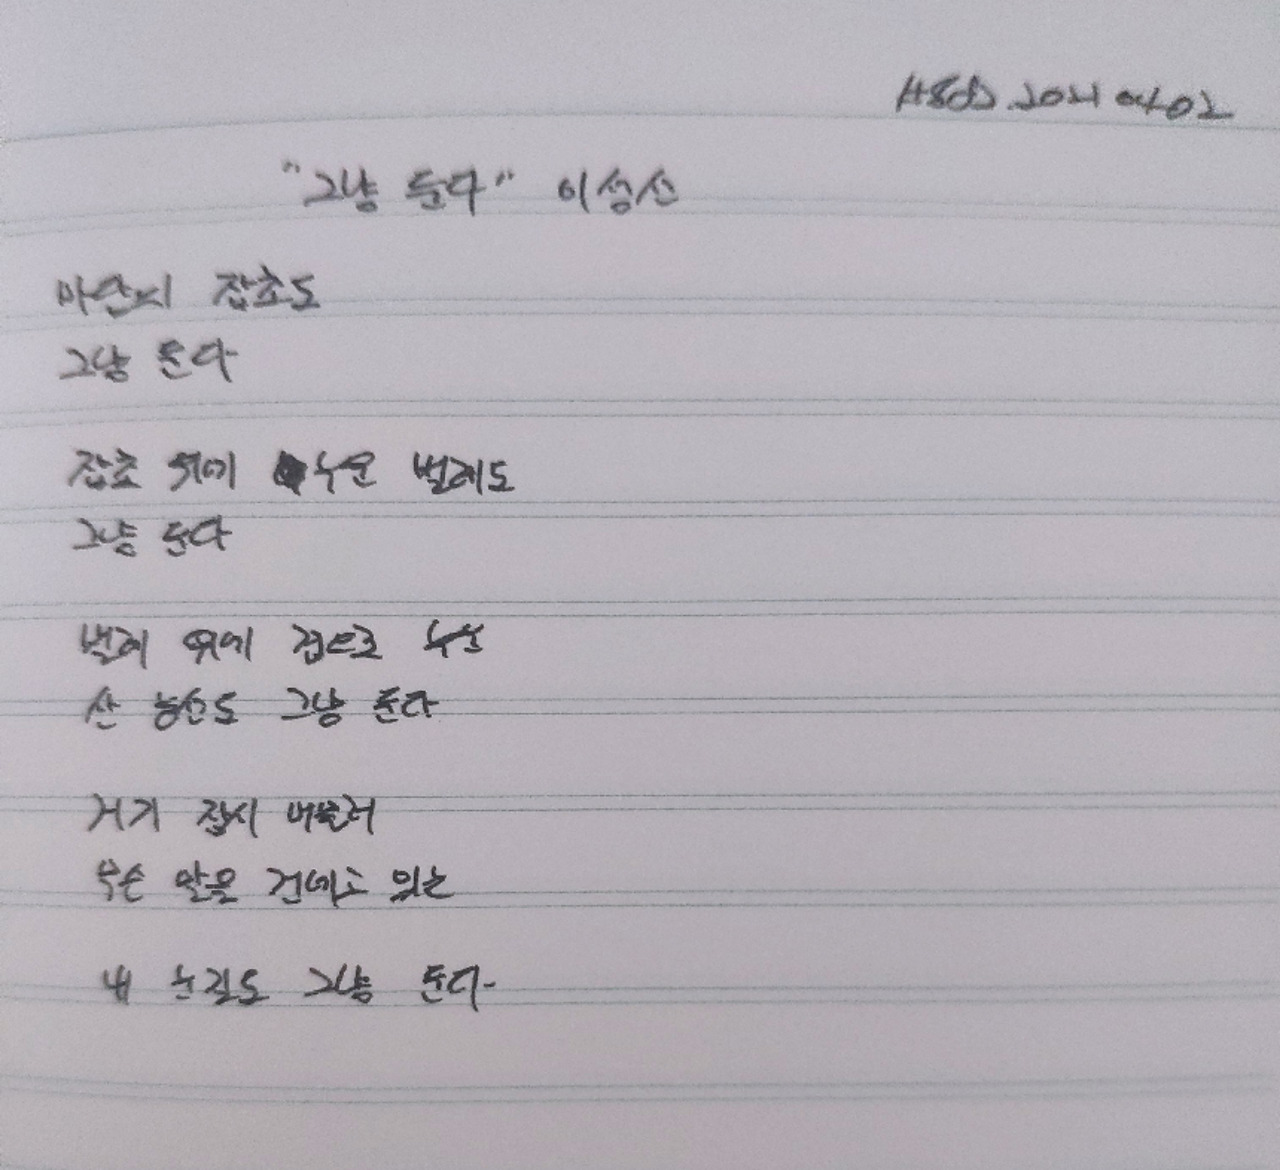 "그냥 둔다" 이성선
마당의 잡초도
그냥 둔다
잡초 위에 누운 벌레도
그냥 둔다
벌레 위에 겹으로 누운
산 능선도 그냥 둔다
거기 잠시 머물러
무슨 말을 건네고 있는
내 눈길도 그냥 둔다